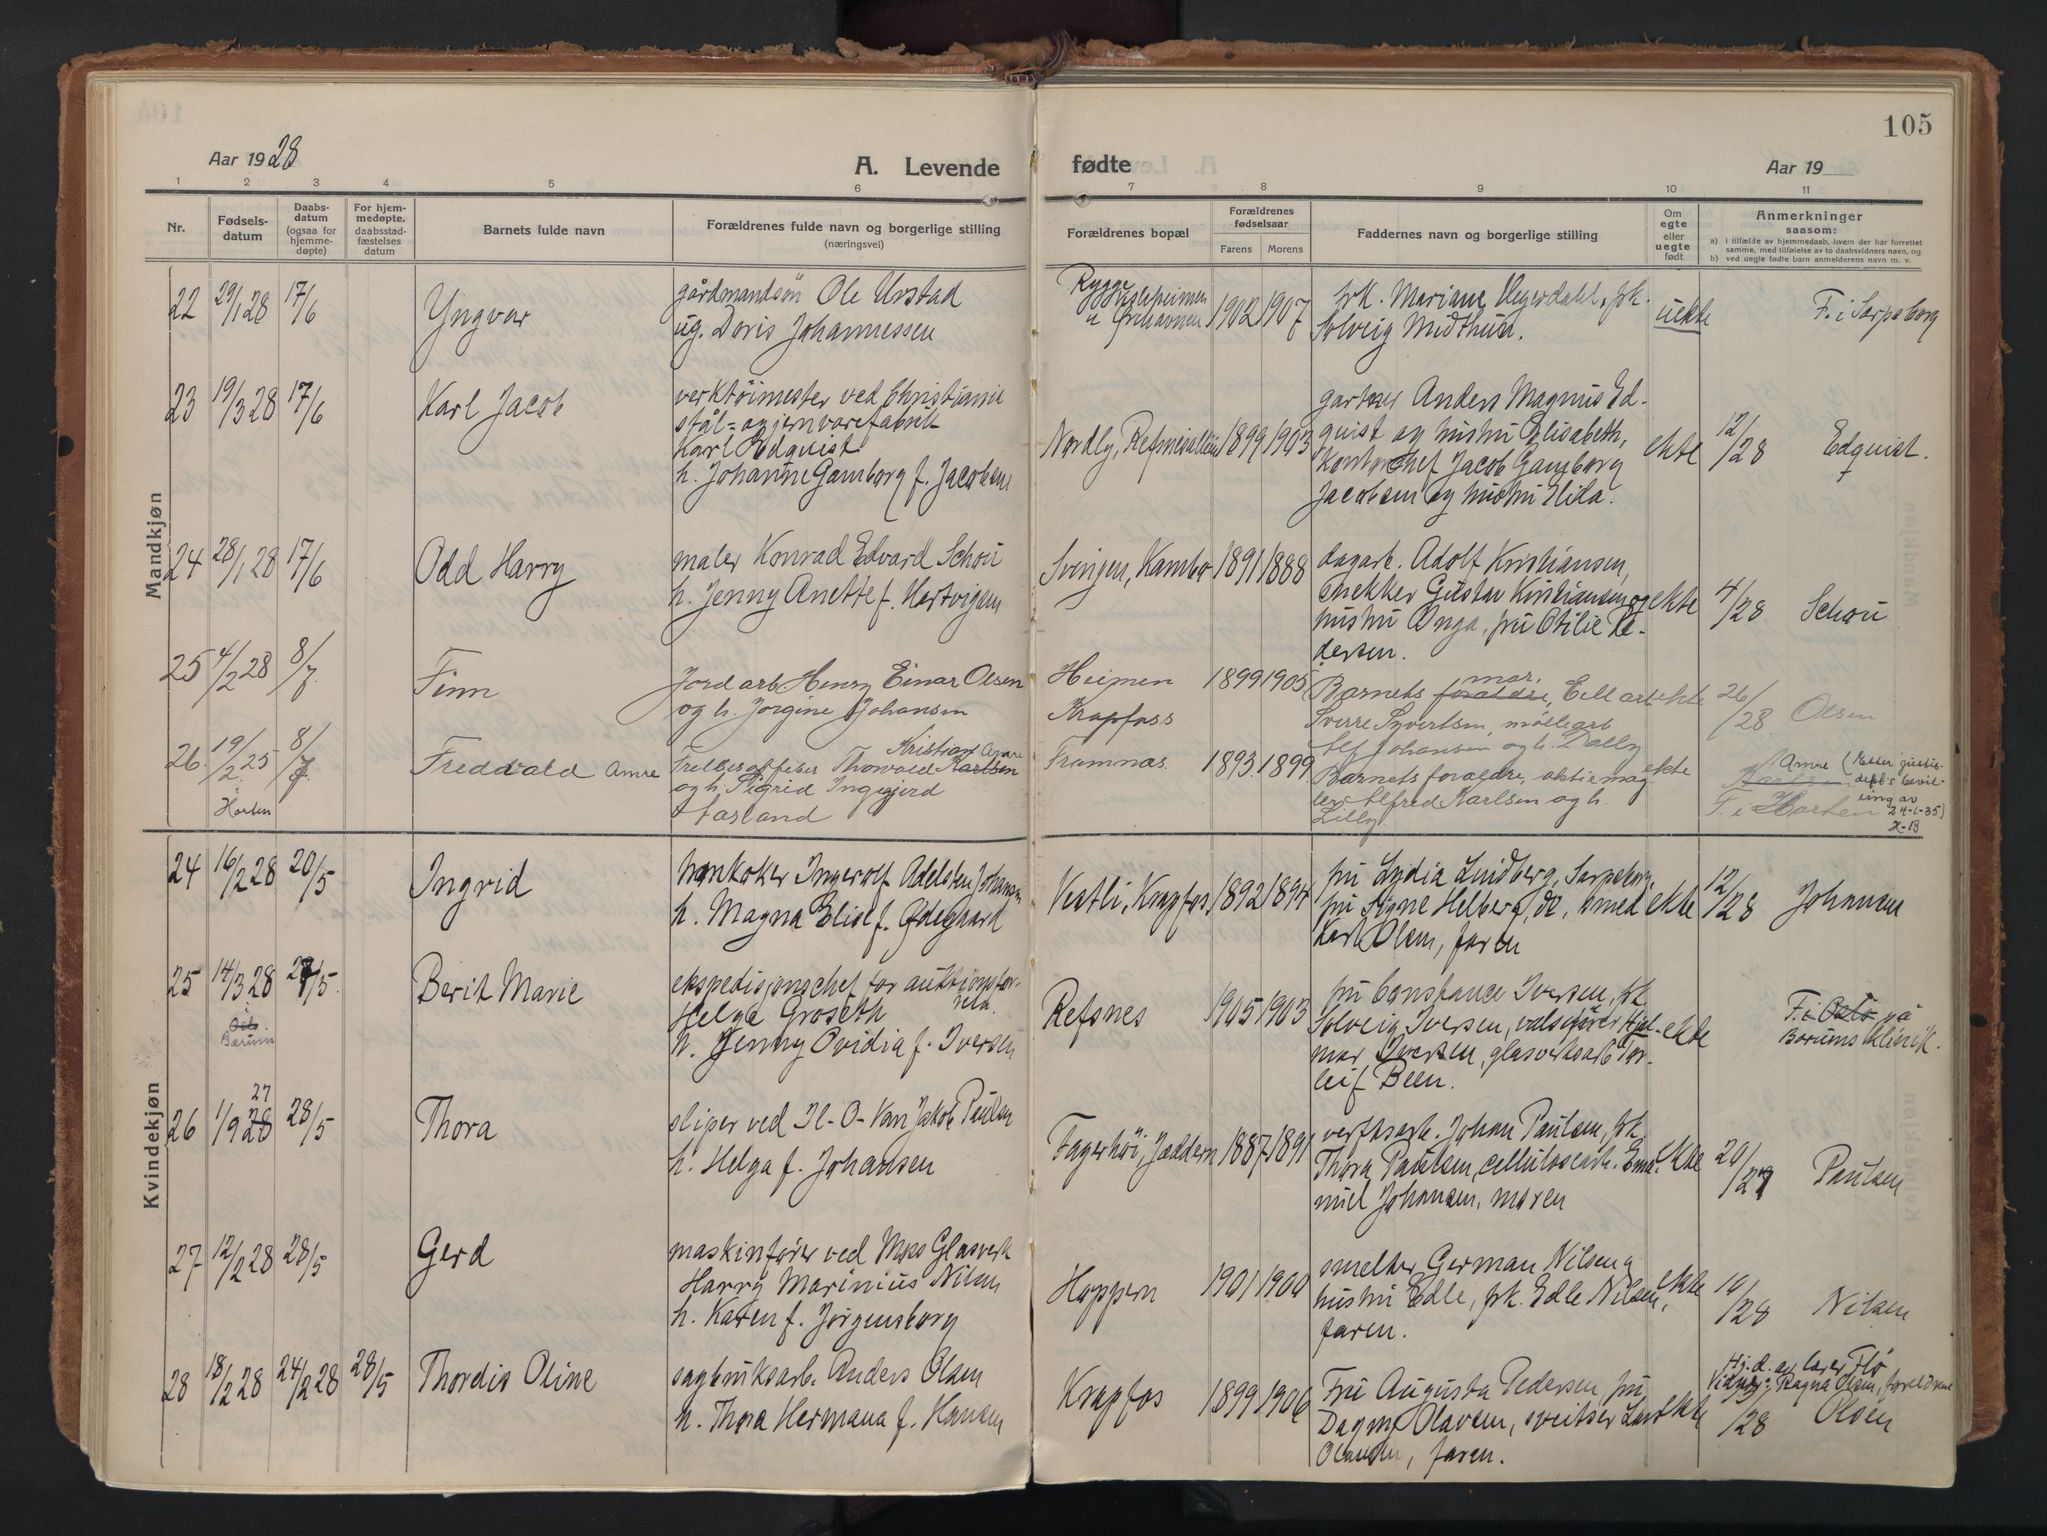 105
Aar 1928
A. Levende
fødte
Aar 19
1 2 3 4 5 6 7 8 9 10 11
Nr.
Fødsels-
datum
Daabs-
datum
(ogsaa for
hjemme-
døpte)
For hjem-
medøpte.
daabsstad-
fæstelses
datum
Barnets fulde navn
Forældrenes fulde navn og borgerlige stilling
(næringsvei)
Forældrenes bopæl
Forældrenes
fødselsaar
Farens Morens
Faddernes navn og borgerlige stilling
Om
egte
eller
uegte
født
Anmerkninger
saasom:
a) i tilfælde av hjemmedaab, hvem der har forrettet
samme, med tilføielse av to daabsvidners navn, og
b) ved uegte fødte barn anmelderens navn m. v.
Mandkjøn
22 29/1 28 17/6
Yngvar
gårdmandsön Ole Urstad
ug. Doris Johannessen
Rygge
1902 1907
frk. Mariane Vegerdahl, frk.
Solveig Midthun.
uekte
F. i Sarpsborg
23 19/3 28 17/6
Karl Jacob
verktöimester ved Christiania
stål- og jernvarefabrik
Karl Edquist
h. Johanne Gamborg f. Jacobsen
Nordly, Refsnesalleen
1899 1903
gartner Anders Magnus Ed-
quist og hustru Elisabeth,
Kontorchef Jacob Gamborg
Jacobsen og hustru Hilda.
ekte
12/28 Edquist.
24 28/1 28 17/6
Odd Harry
maler Konrad Edvard Schou
h. Jenny Anette f. Hartvigsen
Svingen, Kambo
1891 1888
dagarb. Adolf Kristiansen,
snekker Gustav Kristiansen og
hustru Inga, fru Otilie Pe-
dersen.
ekte
4/28 Schou
25 4/2 28 8/7
Finn
Jordarb. Henry Einar Olsen
og h. Jörgine Johansen
Heimen
Krapfoss
1899 1905
mor,
Barnets foraldre, Cell.arb
Sverre Syvertsen, möllearb
Alf Johansen og h. Dally
ekte
26/28 Olsen
26. 19/2 25 8/7
Horten
Freddvald Amre
Kristian Amre
Thorvald Karlsen
og h. Sigrid Ingegjerd
Aasland
Framnæs.
1893. 1899
Barnets foraldre, aktiemæg
ler Alfred Karlsen og h.
Lilly.
ekte
Amre (Etter justis-
dept.s bevil-
ling av
24-1-35)
Karlsen
F. i Horten
Kvindekjøn
24 16/2 28 20/5
Ingrid
Ingerolf Adelsten Johansen
h. Magna Elise f. Ødegaard
Vestli, Krapfos,
1892 1894
fru Lydia Lindberg, Sarpsborg,
fru Signe Helberg, do, smed
Karl Olsen, faren
ekte
12/28 Johansen
25 14/3 28 /5.
i
Oslo
Bærum
Berit Marie
ekspedisjonschef for auktions
Helge Groseth
h. Jenny Ovidia f. Iversen
Refsnes
1905 1903
fru Constance Iversen, frk
Solveig Iversen, valsefører Hjal-
mar Iversen, glasverksarb. Tor-
leif Been.
ekte
F. i Oslo på
Bærums klinik.
26 1/9 28 27 28/5
Thora
sliper ved Jakob Paulsen
h. Helga f. Johansen
Fagerhöi, Jeddern
1887 1891
verftsarb. Johan Paulsen, frk
Thora Paulsen, cellulosearb. Ema-
nuel Johansen, moren
ekte
20/27 Paulsen
27 12/2 28 28/5
Gerd
maskinfører ved Moss Glasverk
Harry Marinius Nilsen
h. Karen f. Jörgensborg
Hoppern
1901 1900
smelter German Nilsen og
hustru Edle, frk. Edle Nilsen,
faren.
ekte
10/28 Nilsen
28 18/2 28 24/2 28 28/5
Thordis Oline
sagbruksarb. Anders Olsen
h. Thora Hermana f. Hansen
Krapfos
1899 1906
Fru Augusta Pedersen, fru
Dagny Olavsen, sveitser
Olavsen, faren.
ekte
Hj.d. av lærer Flö
Vidner: Ragna Olsen, foreldrene
/28 Olsen